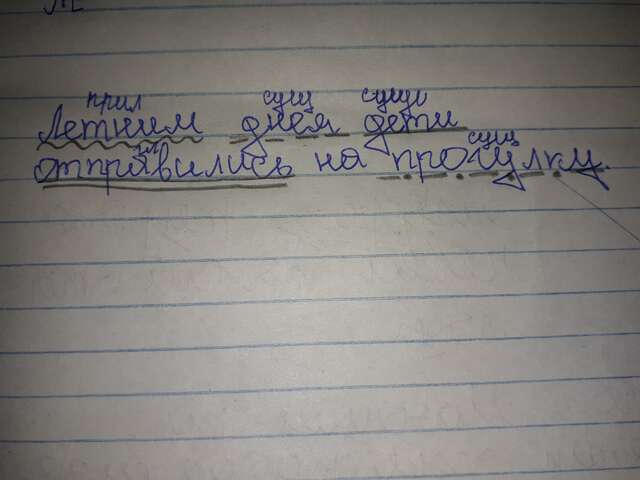 прил сущ сущ
Летним днём дети
гл сущ
отправились на прогулку.